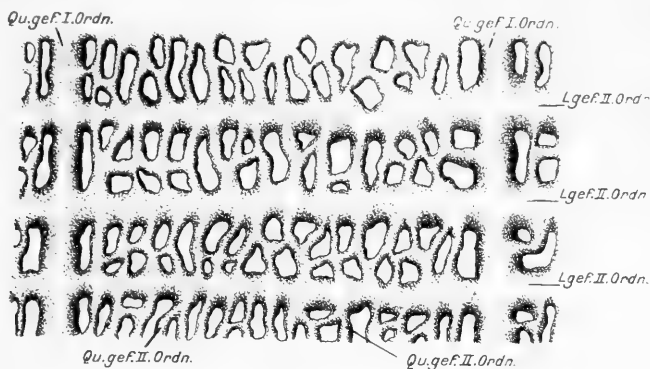 Qu.gef.I.Ordn.
Qu.gef.I.Ordn.
Lgef.II.Ordn
Lgef.II.Ordn.
Lgef.II.Ordn.
Qu.gef.II.Ordn.
Qu.gef.II.Ordn.